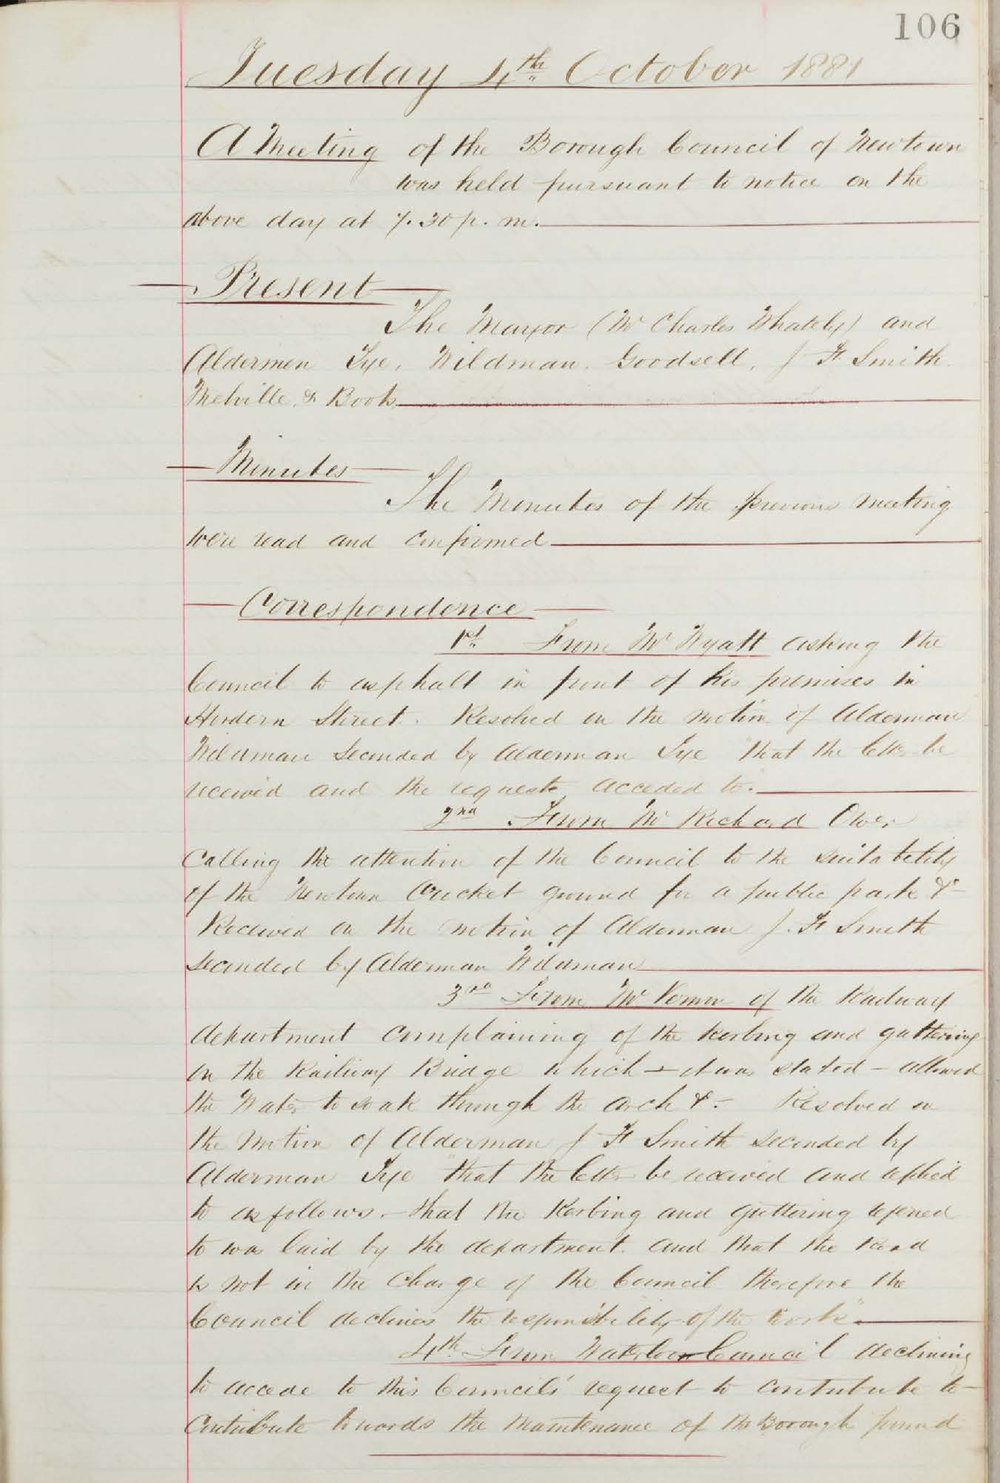 106
Tuesday 4th October 1881
A Meeting of the Borough Council of Newtown
was held pursuant to notice on the
above day at 7.30 p. m.
Present
The Mayor (Mr Charles Whately) and
Aldermen Tye, Wildman, Goodsell, J. F. Smith
Melville & Book
Minutes
The Minutes of the previous meeting
were read and confirmed
Correspondence
1st From Mr Wyatt asking the
Council to asphalt in front of his premises in
Horden Street. Resolved on the motion of Alderman
Wildman seconded by Alderman Tye "that the letter be
received and the requests acceded to.
2nd From Mr Richard
Calling the attention of the Council to the suitability
of the Newtown Cricket ground for a public park &c
Received on the motion of Alderman J. F. Smith
seconded by Alderman Wildman
3rd From Mr Vernon of the Railway
department complaining of the kerbing and guttering
on the Railway Bridge which - it was stated - allowed
the Water to soak through the arch &c. Resolved on
the motion of Alderman J F Smith seconded by
Alderman Tye "that the letter be received and replied
to as follows. - that the Kerbing and guttering refered
to was laid by the department. and that the road
is not in the charge of the Council therefore the
Council declines the responsibility of the work".
4th From Waterloo Council declining
to accede to this Councils' request to contribute to
Contribute towards the maintenance of the Borough pound